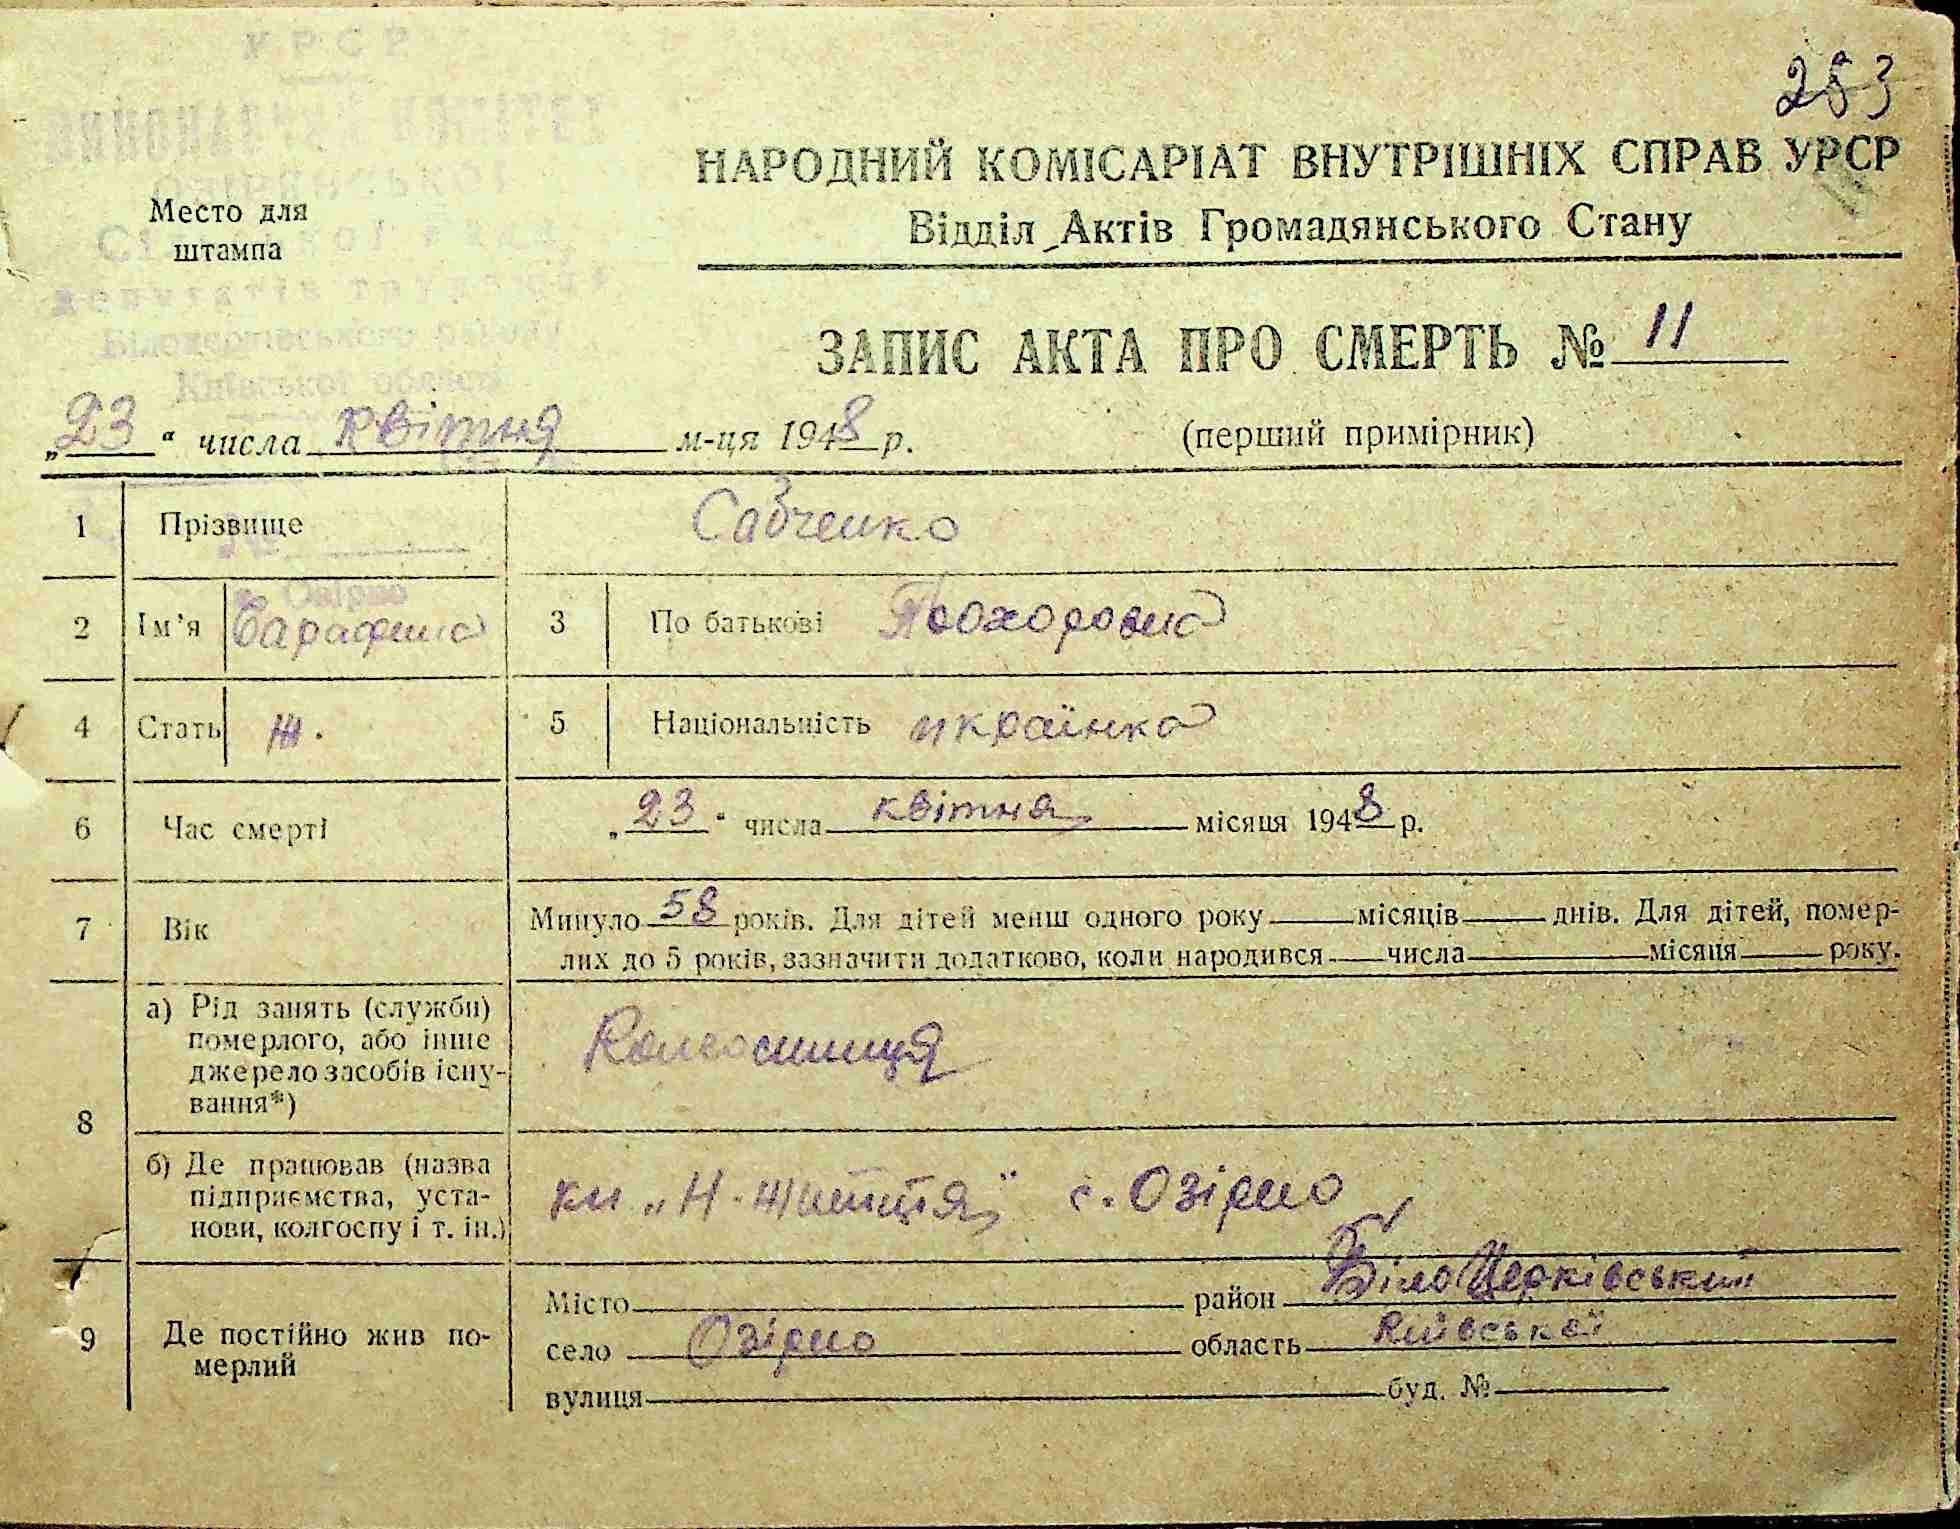 283
УРСР
ВИКОНАВЧИЙ КОМІТЕТ
депутатів трудящих
Білоцерківського району
Київської області
Место для
штампа
НАРОДНИЙ КОМІСАРІАТ ВНУТРІШНІХ СПРАВ УРСР
Відділ Актів Громадянського Стану
ЗАПИС АКТА ПРО СМЕРТЬ № 11
„23“ числа квітня м-ця 1948 р. (перший примірник)
1 Прізвище Савченко
№
Озірно
2 Ім'я Сарафина 3 По батькові Прохоровна
4 Стать Ж. 5 Національність українка
6 Час смерті „23“ числа квітня місяця 1948 р.
7 Вік Минуло 58 років. Для дітей менш одного року місяців днів. Для дітей, помер-
лих до 5 років, зазначити додатково, коли народився числа місяця року.
8 а) Рід занять (служби)
померлого, або інше
джерело засобів існу-
вання*)
Колгоспниця
б) Де працював (назва
підприємства, уста-
нови, колгоспу і т. ін.)
„Н. Життія“ с. Озірно
9 Де постійно жив по-
мерлий
Місто район БілоЦерківський
село Озірно область Київської
вулиця буд. №